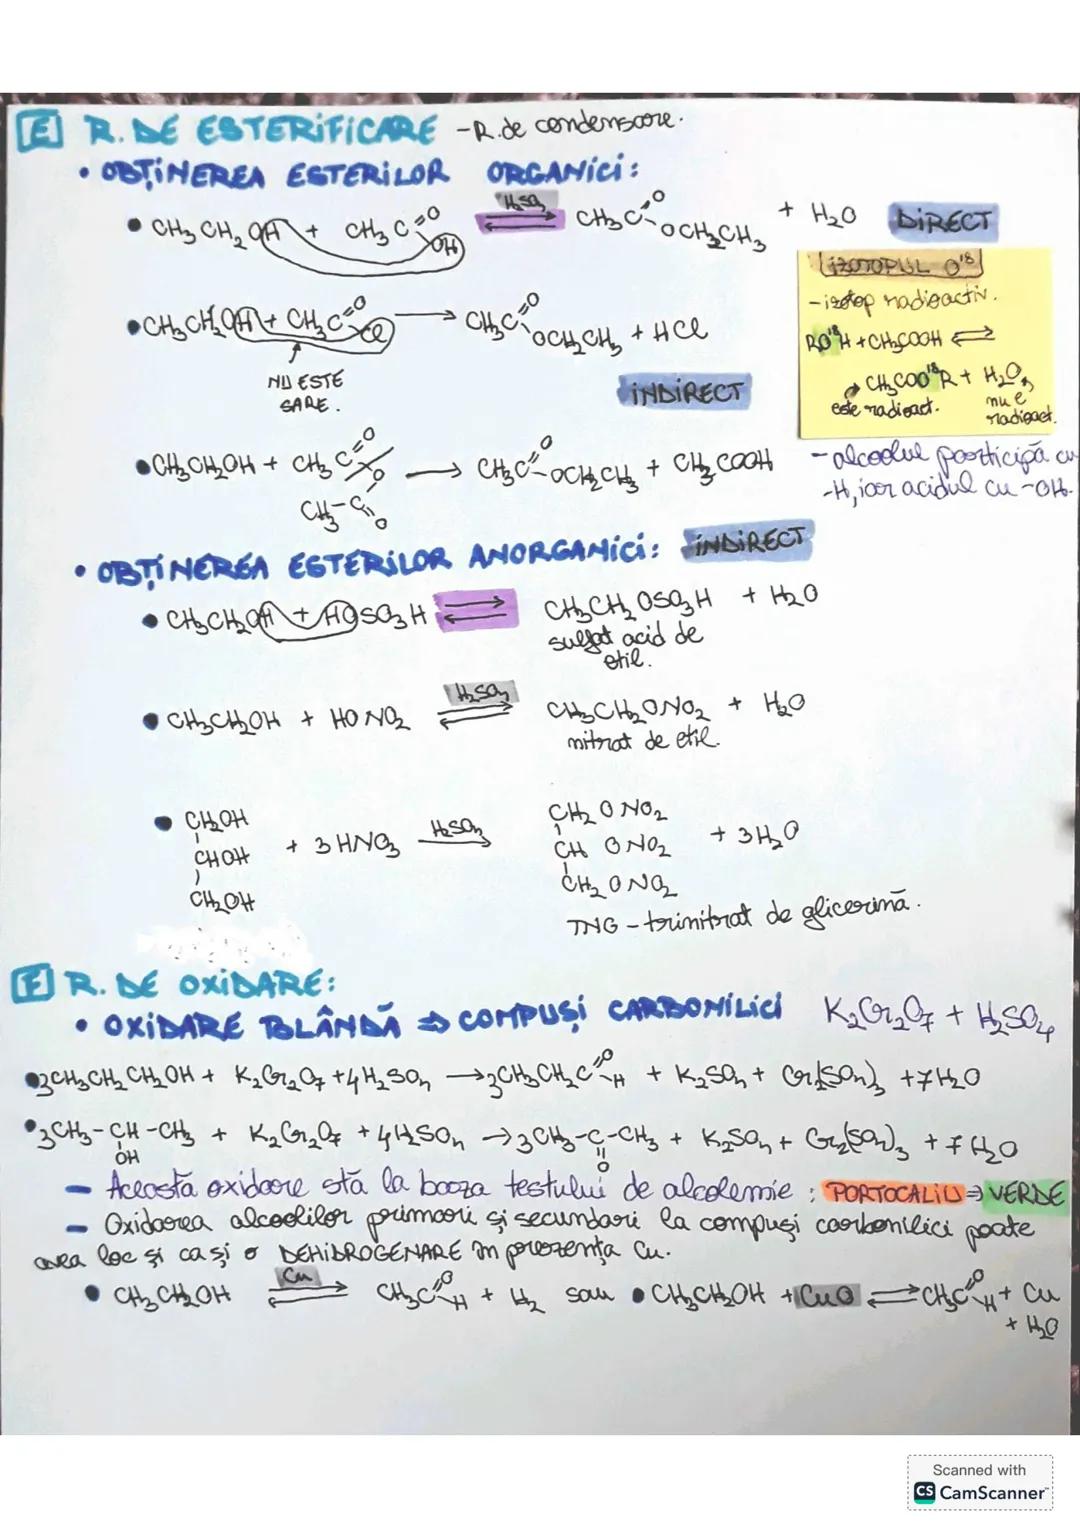 E R. DE ESTERIFICARE - R. de condensare.
• OBȚINEREA ESTERILOR ORGANICI:
• CH3CH2OH + CH3C=O OH ⇌ H2SO4 CH3C=O OCH2CH3 + H2O DIRECT
IZOTOPUL O18
- izotop radioactiv.
RO18H + CH3COOH ⇌
CH3COO18R + H2O
este radioact. nu e radioact.
• CH3CH2OH + CH3C=O Cl → CH3C=O OCH2CH3 + HCl
NU ESTE
SARE.
INDIRECT
• CH3CH2OH + CH3C=O O CH3-C=O → CH3C=O OCH2CH3 + CH3COOH
- alcoolul participă cu
-H, iar acidul cu -OH.
• OBȚINEREA ESTERILOR ANORGANICI: INDIRECT
• CH3CH2OH + HOSO3H ⇌ CH3CH2OSO3H + H2O
sulfat acid de
etil.
• CH3CH2OH + HONO2 ⇌ H2SO4 CH3CH2ONO2 + H2O
nitrat de etil.
• CH2OH CH2ONO2
CHOH + 3HNO3 H2SO4 ⇌ CHONO2 + 3H2O
CH2OH CH2ONO2
TNG - trinitrat de glicerină.
F R. DE OXIDARE:
• OXIDARE BLÂNDĂ ⇒ COMPUȘI CARBONILICI K2Cr2O7 + H2SO4
• 3CH3CH2CH2OH + K2Cr2O7 + 4H2SO4 → 3CH3CH2C=O H + K2SO4 + Cr2(SO4)3 + 7H2O
• 3CH3-CH-CH3 + K2Cr2O7 + 4H2SO4 → 3CH3-C-CH3 + K2SO4 + Cr2(SO4)3 + 7H2O
OH O
- Această oxidare stă la baza testului de alcolemie : PORTOCALIU ⇒ VERDE
- Oxidarea alcoolilor primari și secundari la compuși carbonilici poate
avea loc și ca și o DEHIDROGENARE în prezența Cu.
• CH3CH2OH Cu ⇌ CH3C=O H + H2 sau • CH3CH2OH + CuO ⇌ CH3C=O H + Cu
+ H2O
Scanned with
CS CamScanner